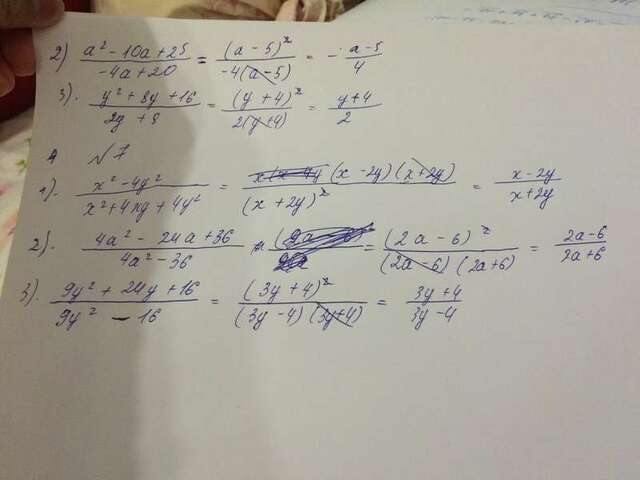 2) (a² - 10a + 25)/(-4a + 20) = (a - 5)²/(-4(a - 5)) = - (a - 5)/4
3). (y² + 8y + 16)/(2y + 8) = (y + 4)²/(2(y + 4)) = (y + 4)/2
№7
1). (x² - 4y²)/(x² + 4xy + 4y²) = (x - 2y)(x + 2y)/(x + 2y)² = (x - 2y)/(x + 2y)
2). (4a² - 24a + 36)/(4a² - 36) = (2a - 6)²/((2a - 6)(2a + 6)) = (2a - 6)/(2a + 6)
3). (9y² + 24y + 16)/(9y² - 16) = (3y + 4)²/((3y - 4)(3y + 4)) = (3y + 4)/(3y - 4)